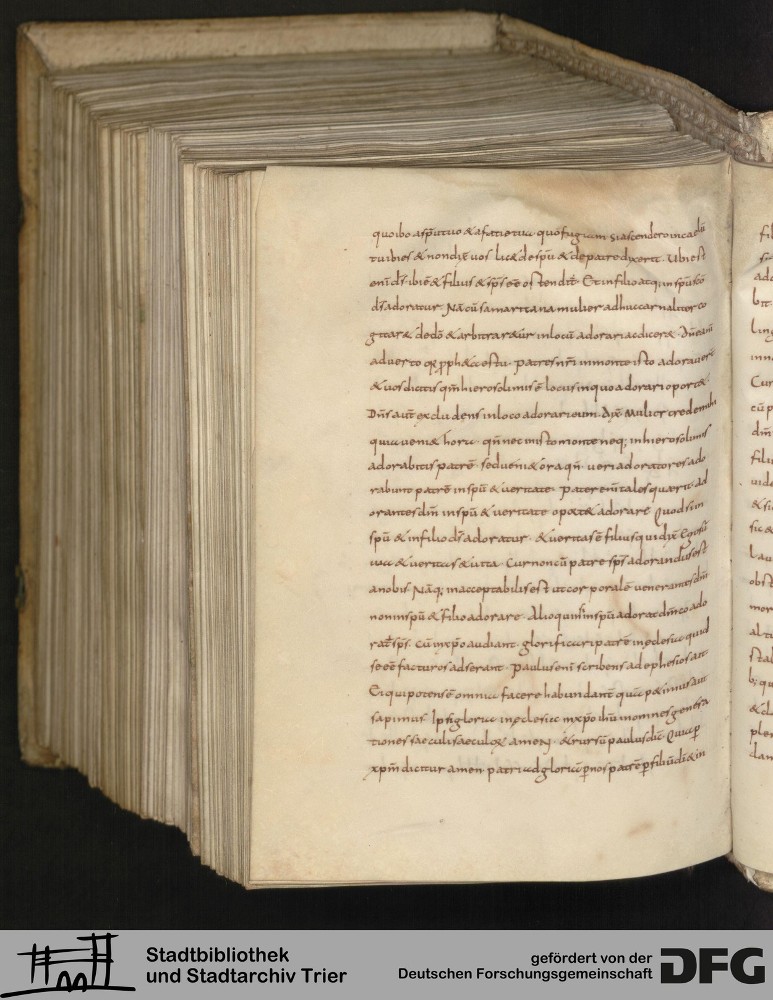 quo ibo a spū tuo & a facie tua quo fugiam. Si ascendero in caelū
tu ibi es & non diē uos lic& de spū & de patre dixerit. Ubi est
eni ds̄ ibi ē & filius & sp̄s eē ostendit. Et in filio atq; in spū scō
ds̄ adoratur. Nā cū samaritana mulier adhuc carnaliter co
gitar& de dō & arbitrar&ur in locū adorari ac dicer&. Dn̄e
aduerto qp̄ proph&a es tu. patres nr̄i in monte isto adorauerē
& uos dicitis qm̄ hierosolimis ē locus in quo adorari oport&.
Dn̄s aut̄ excludens in loco adorari eum. Ait. Mulier crede mihi
quia ueni& hora. qn̄ nec in isto monte neq; in hierosolimis
adorabitis patrē. sed ueni& ora qn̄. ueri adoratores ado
rabunt patrē in spū & ueritate. pater eni tales quaerit ad
orantes dm̄ in spū & ueritate oport& adorare. Quod si in
spū & in filio ds̄ adoratur. & ueritas ē filius qui dix̄. Ego sū
uia & ueritas & uita. Cur non cū patre sp̄s adorandus est
a nobis. Nāq; inacceptabilis est ut corporale uenerantes dm̄
non in spū & filio adorare. Alioquin si in spū adorat dm̄ co ado
rat̄ sp̄s. Cū in xp̄o audiant glorificari patrē in eclesia quid
se eē facturos adserant. Paulus eni scribens ad ephesios ait
Ei qui potens ē omnia facere habundant̄ quā p&imus aut
sapimus. Ipsi gloria in eclesia in xp̄o ihū in omnes genera
tiones saeculi saeculoꝝ amen. & rursū paulus dic̄. Quia ꝑ
xpm̄ dicitur amen. patri ad gloriā ꝑ nos patrē ꝑ filiū di & in
Stadtbibliothek
und Stadtarchiv Trier
gefördert von der
Deutschen Forschungsgemeinschaft
DFG